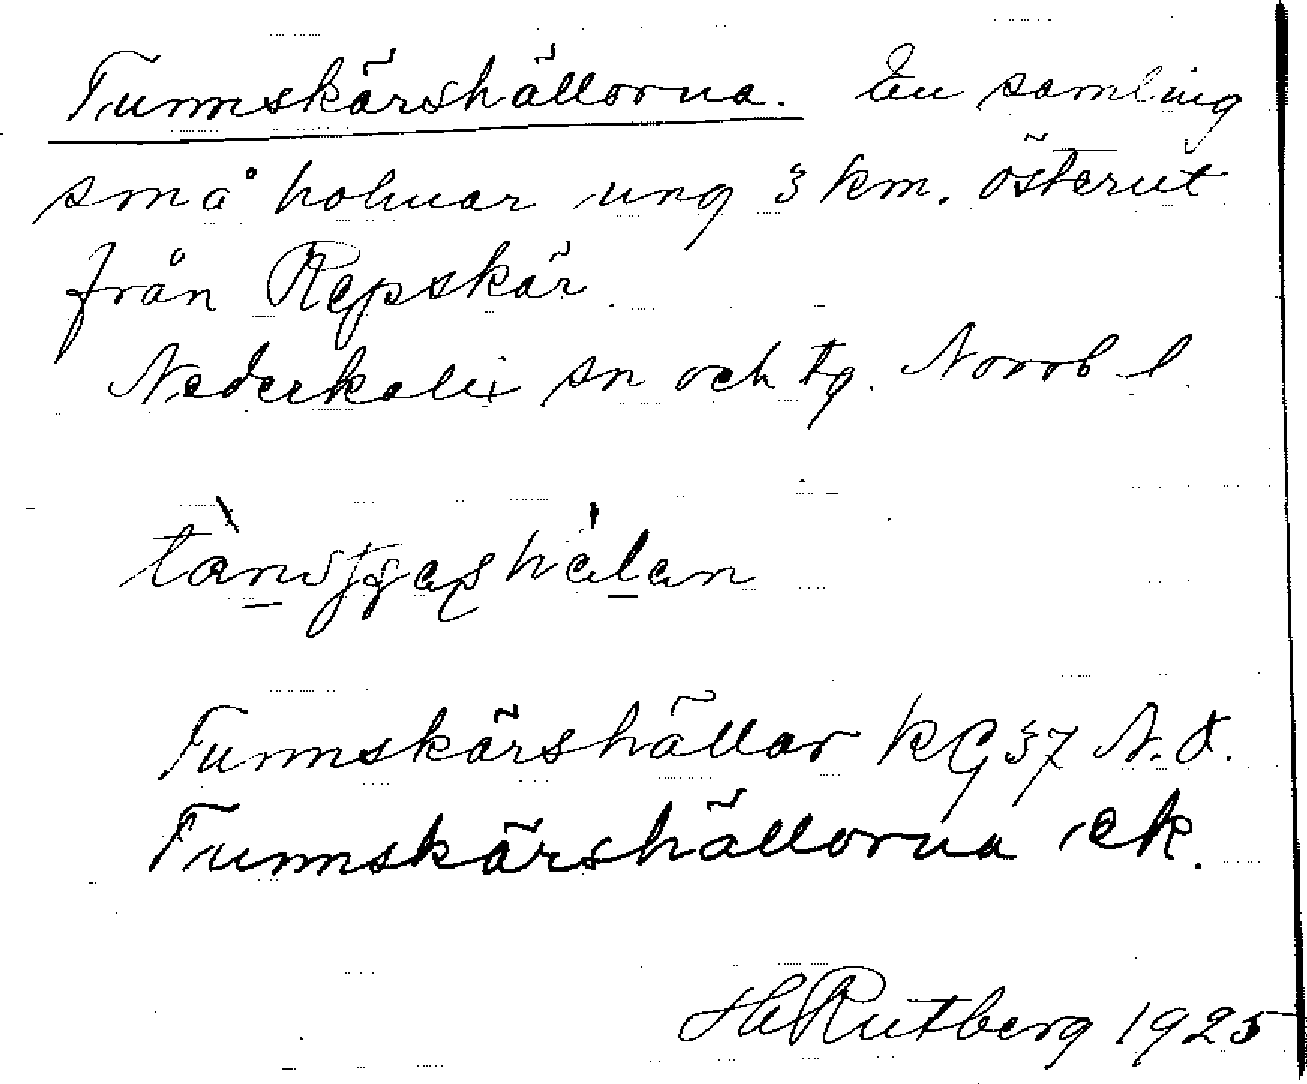 Tunnskärshällorna. En samling
små holmar ung 3 km. österut
från Repskär.
Nederkalix sn och tg. Norrb l.
Tunnskärshällar KG 37 N.O.
Tunnskärshällorna ek.
H Rutberg 1925